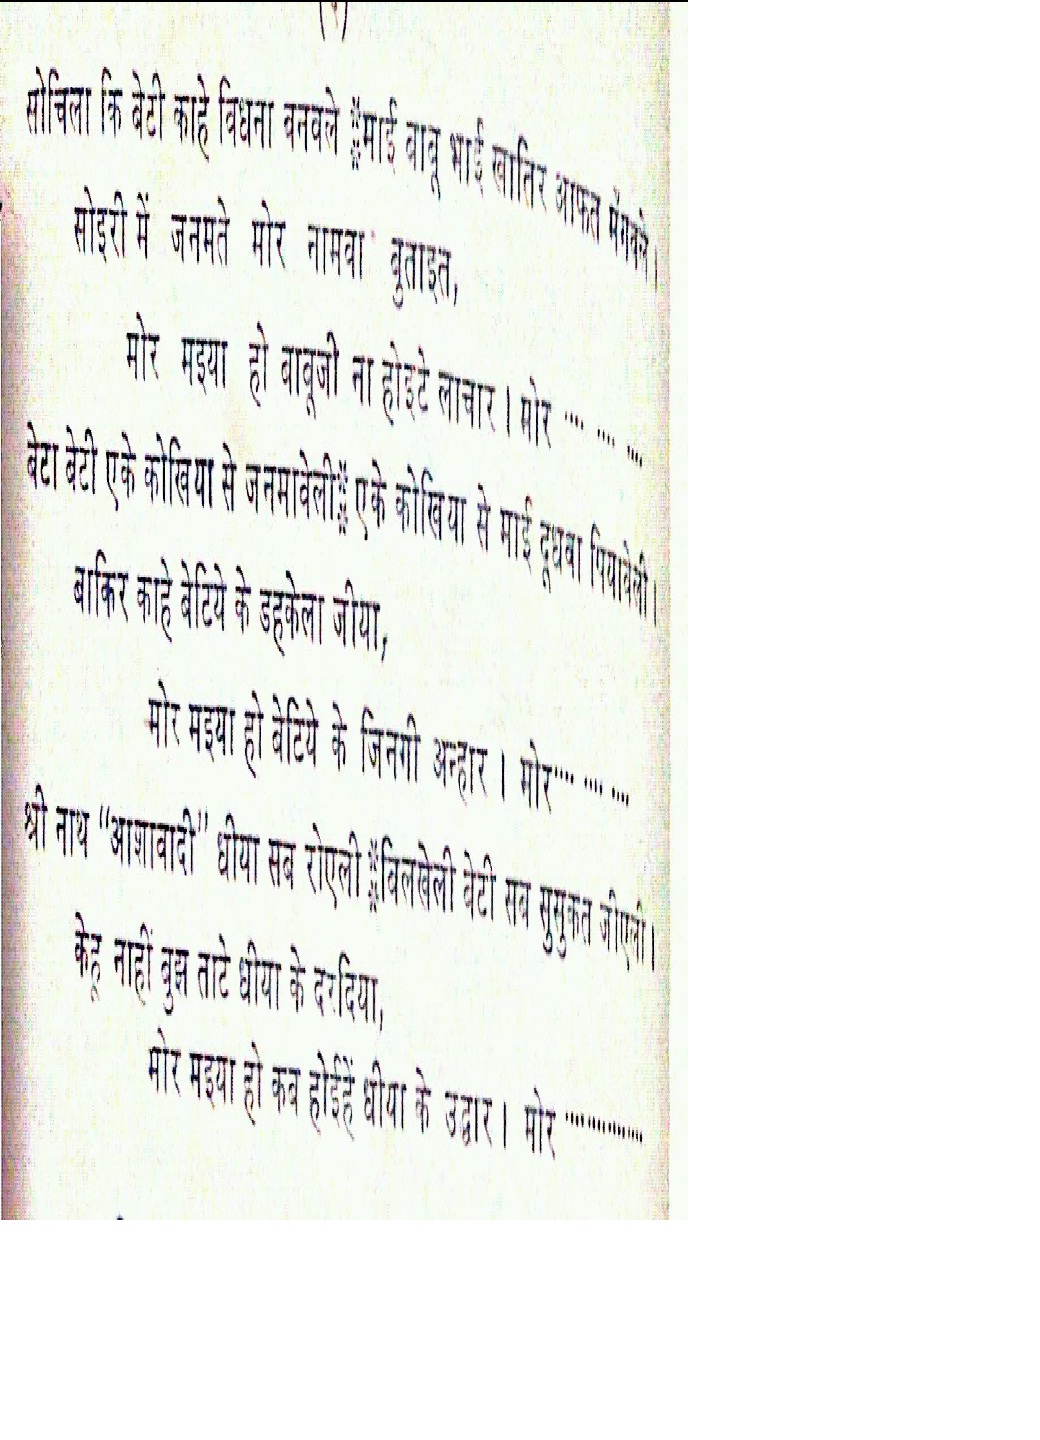 सोचिला कि बेटी काहे विधना बनवले ⁑माई बाबू भाई खातिर आफत मँगवले।
सोइरी में जनमते मोर नामवा बुताइत,
मोर मइया हो बाबूजी ना होइटे लाचार। मोर .... .... ....
बेटा बेटी एके कोखिया से जनमावेली⁑ एके कोखिया से माई दूधवा पियावेली।
बाकिर काहे बेटिये के डहकेला जीया,
मोर मइया हो बेटिये के जिनगी अन्हार। मोर.... .... ....
श्री नाथ “आशावादी” धीया सब रोएली ⁑बिलखेली बेटी सब सुसुकत जीएली।
केहू नाहीं बुझ ताटे धीया के दरदिया,
मोर मइया हो कब होईहें धीया के उद्धार। मोर ..............